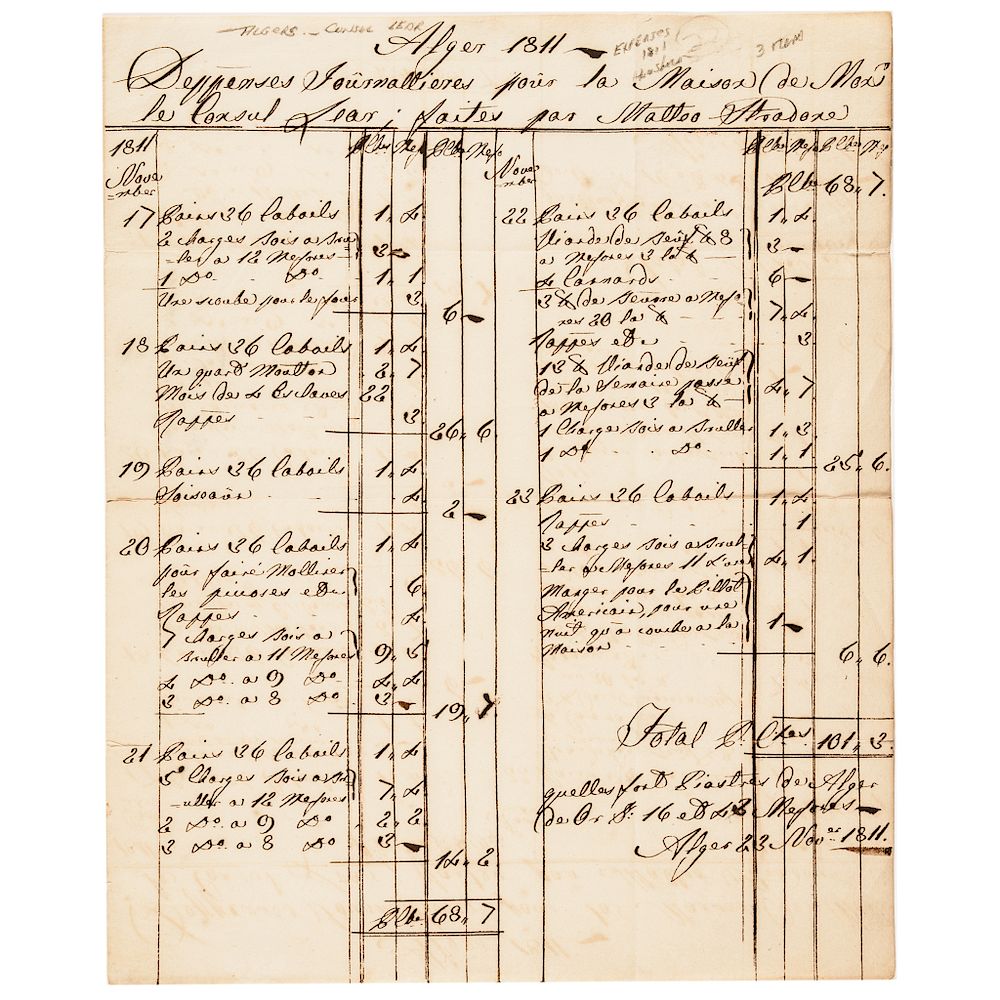 ALGERS - CONSUL LEAR
EXPENSES
1811
Household
3 ITEMS
Alger 1811
Deppenses Journallieres pour la Maison de Monr
le Consul Lear; faites par Matteo Stradone
1811 Pltes Mejo Pltes Mejo
Nove
=mber
17 Pains 36 Cabails 1,, 4
2 charges bois a bru
=ler a 12 Mesores 3 —
1 Do. Do. 1,, 1
Une scoube pour le four 3
6 —
18 Pains 36 Cabails 1,, 4
Un quart Moutton 2,, 7
Mois de 4 Esclaves 22
Nappes 3
26,, 6
19 Pains 36 Cabails 1,, 4
4
2 —
20 Pains 36 Cabails 1,, 4
pour faire Mollinar
les et Du 6
Nappes 4
7 charges bois a
bruller a 11 Mesores 9,, 5
4 Do. a 9 Do. 4,, 4
3 Do. a 8 Do. 3 —
19,, 7
21 Pains 36 Cabails 1,, 4
5 Charges bois a br
=uller a 12 Mesores 7,, 4
2 Do. a 9 Do. 2,, 2
3 Do. a 8 Do. 3 —
14,, 2
Plte 68,, 7
Pltes Mejo Pltes Mejo
Nove
=mber
Plte 68,, 7
22 Pains 36 Cabails 1,, 4
Viande de beuf 8
a Mesores 3 la 3 —
4 Cannards 6 —
3 de beurre a Meso
res 20 la 7,, 4
Nappes et Du 3
13 Viande de beuf
de la Semaine passe
a Mesores 3 la 4,, 7
1 Charge bois a bruller 1,, 3
1 Do. Do. 1,, 1
25,, 6
23 Pains 36 Cabails 1,, 4
Nappes 1
3 Charges bois a brul
ler a Mesores 11 l'une 4,, 1
Manger pour le Pillot
Americain, pour une
nuit qu'a couche a la 1 —
Maison
6,, 6
Total P. Ctas. 101,, 3
quelles font Piastres de Alger
de Or P: 16 et 43 Mesores —
Alger 23 Nover 1811.